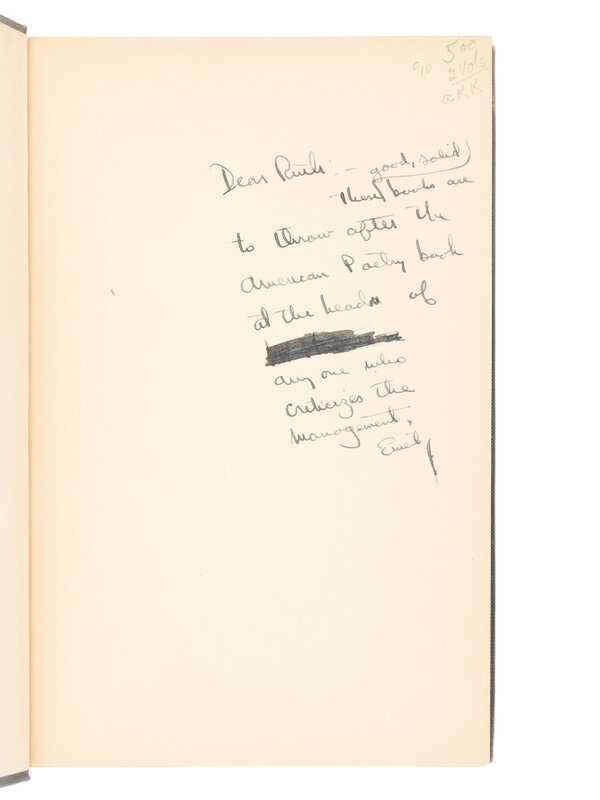 c10 5.00
2 Vols
a K K
Dear Ruth: - good, solid
- these books are
to throw after the
American Poetry book
at the heads of
any one who
criticizes the
management.
Ernest